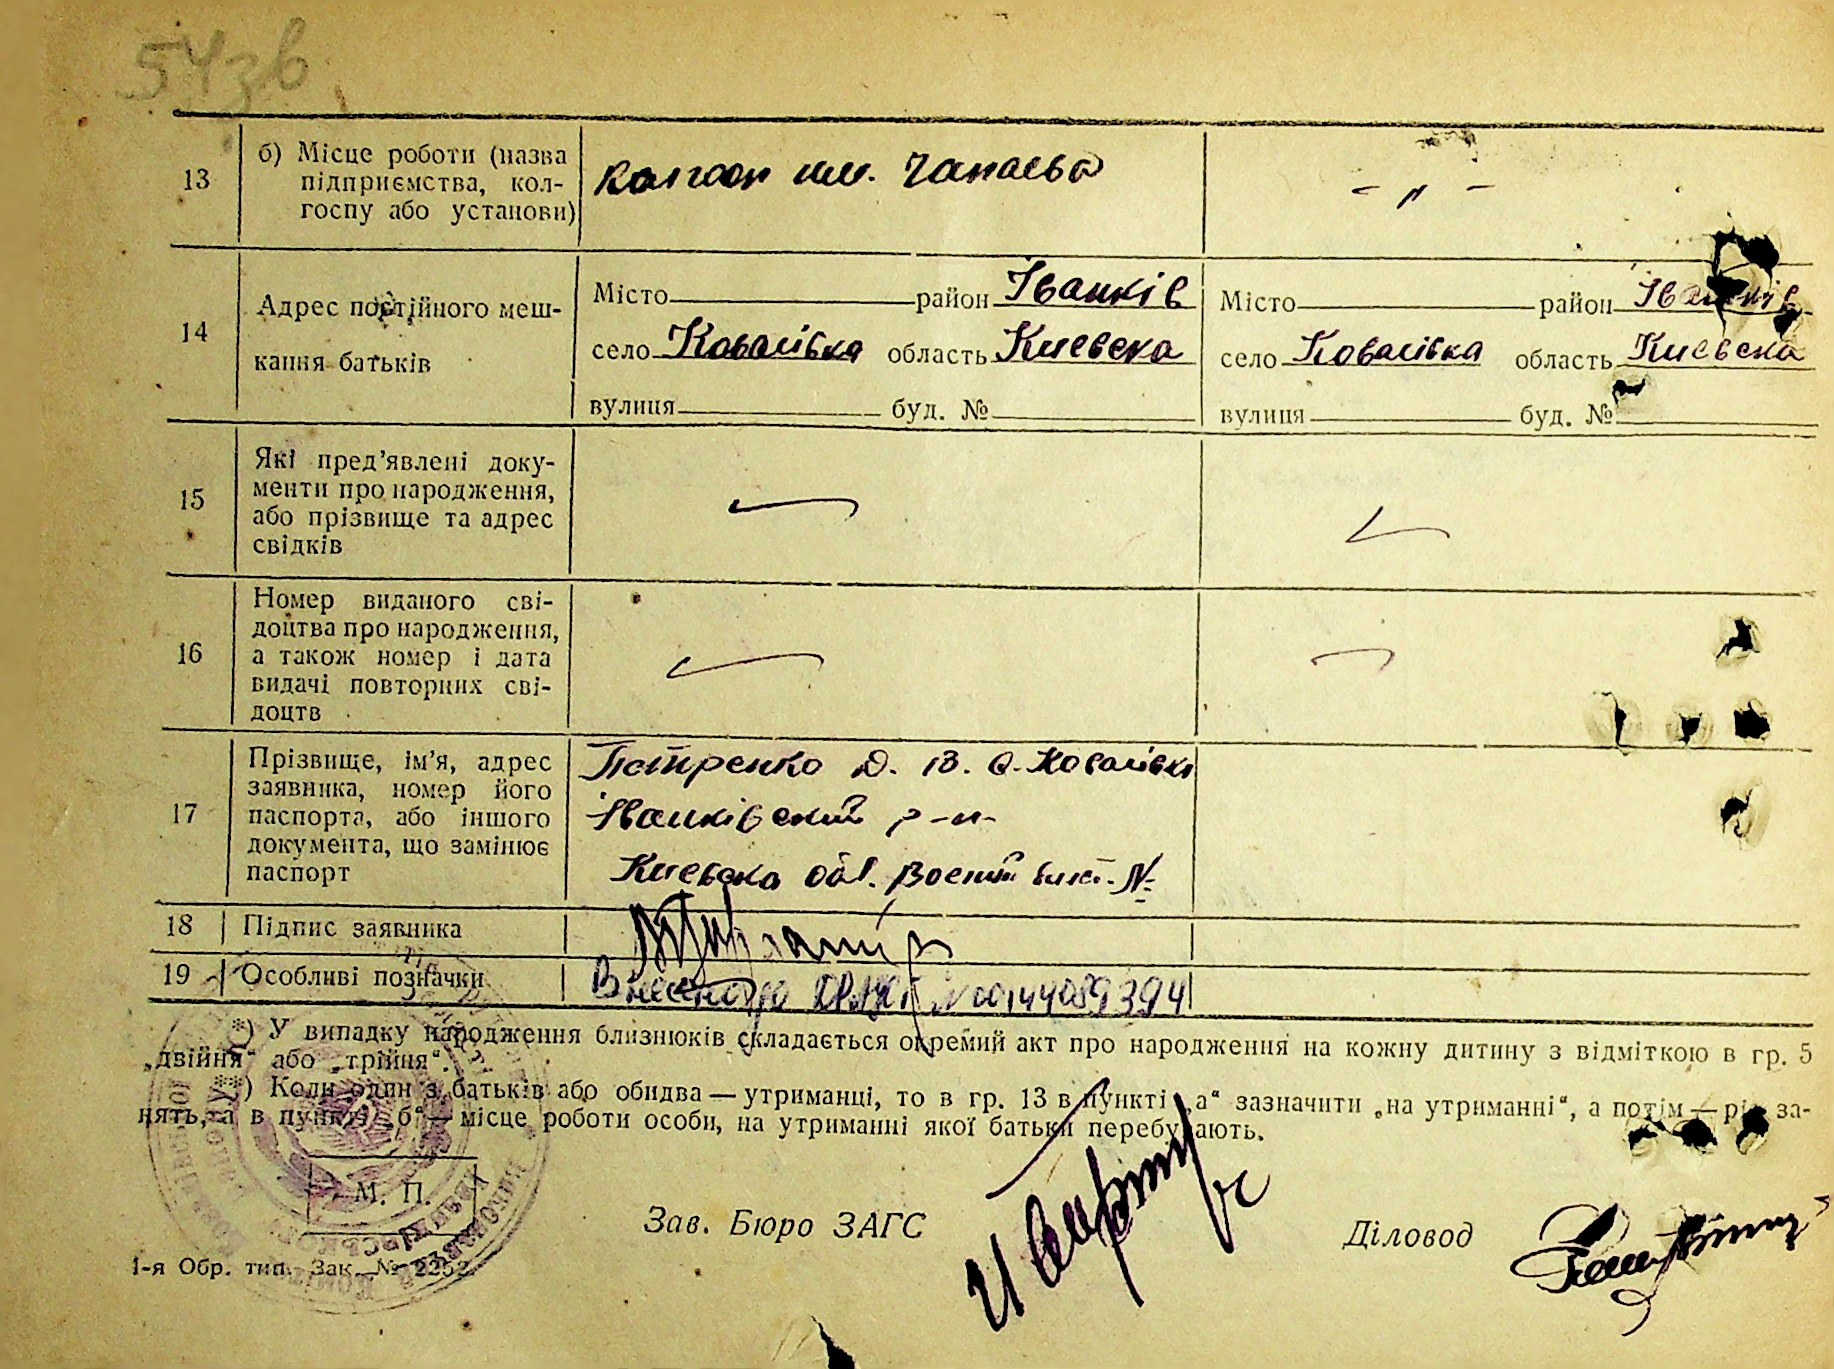 54зв
13
б) Місце роботи (назва
підприємства, кол-
госпу або установи)
Колгосп им. Чапаєва
- " -
14
Адрес постійного меш-
кання батьків
Місто район Іванків
село Ковалівка область Киевска
вулиця буд. №
Місто район Іванків
село Ковалівка область Киевска
вулиця буд. №
15
Які пред’явлені доку-
менти про народження,
або прізвище та адрес
свідків
16
Номер виданого сві-
доцтва про народження,
а також номер і дата
видачі повторних сві-
доцтв
17
Прізвище, ім’я, адрес
заявника, номер його
паспорта, або іншого
документа, що замінює
паспорт
Петренко Д. В. с. Ковалівка
Іванківский р-н
Киевска обл. Воений билет №
18
Підпис заявника
19
Особливі позначки
Внесено до ДРАЦС №00144089394
*) У випадку народження близнюків складається окремий акт про народження на кожну дитину з відміткою в гр. 5
„двійня“ або „трійня“.
**) Коли один з батьків або обидва — утриманці, то в гр. 13 в пункті „а“ зазначити „на утриманні“, а потім — рід за-
нять, а в пункті „б“ — місце роботи особи, на утриманні якої батьки перебувають.
М. П.
Зав. Бюро ЗАГС
Діловод
1-я Обр. тип. Зак. № 2252.